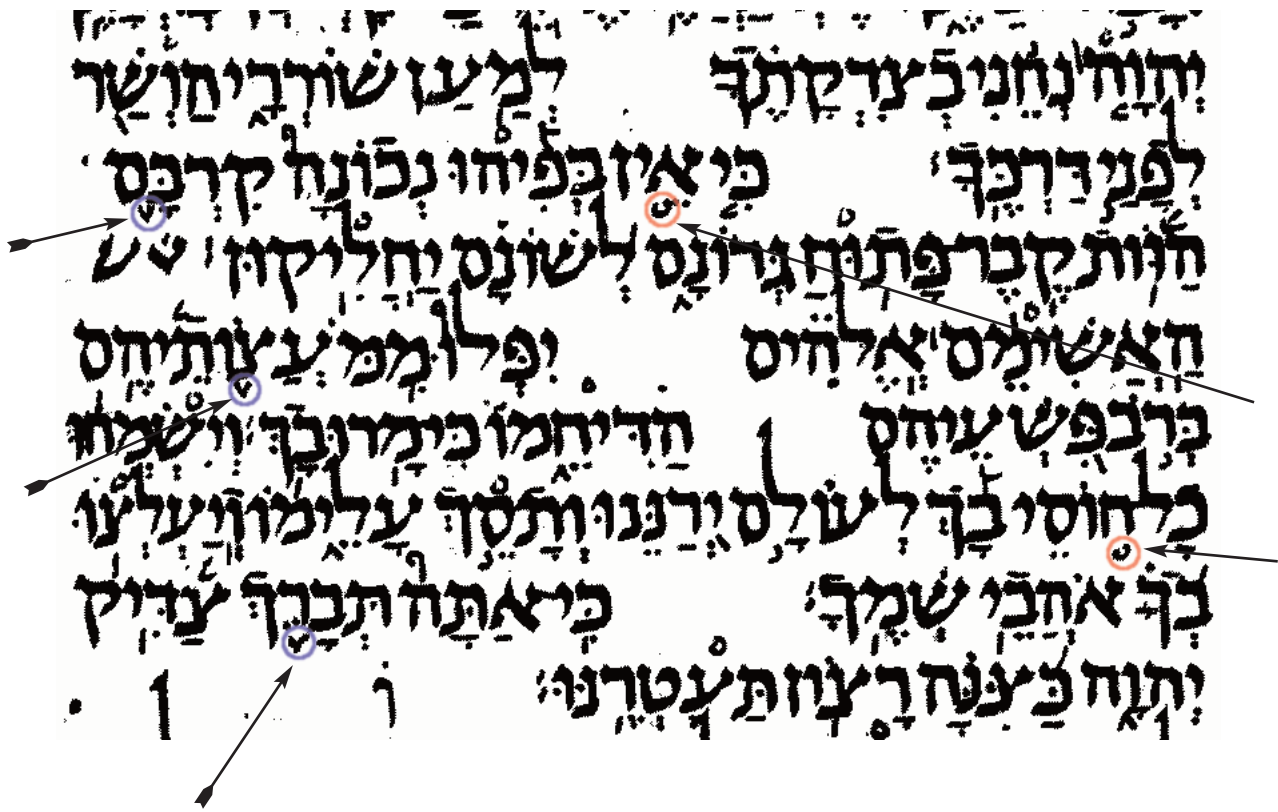 יְהוָה נְחֵנִי בְצִדְקָתֶךָ לְמַעַן שׁוֹרְרָי הַוְשַׁר
לְפָנַי דַּרְכֶּךָ׃ כִּי אֵין בְּפִיהוּ נְכוֹנָה קִרְבָּם
הַוּוֹת קֶבֶר פָּתוּחַ גְּרוֹנָם לְשׁוֹנָם יַחֲלִיקוּן׃
הַאֲשִׁימֵם אֱלֹהִים יִפְּלוּ מִמֹּעֲצוֹתֵיהֶם
בְּרֹב פִּשְׁעֵיהֶם הַדִּיחֵמוֹ כִּי מָרוּ בָךְ׃ וְיִשְׂמְחוּ
כָל חוֹסֵי בָךְ לְעוֹלָם יְרַנֵּנוּ וְתָסֵךְ עָלֵימוֹ וְיַעְלְצוּ
בְךָ אֹהֲבֵי שְׁמֶךָ׃ כִּי אַתָּה תְּבָרֵךְ צַדִּיק
יְהוָה כַּצִּנָּה רָצוֹן תַּעְטְרֶנּוּ׃